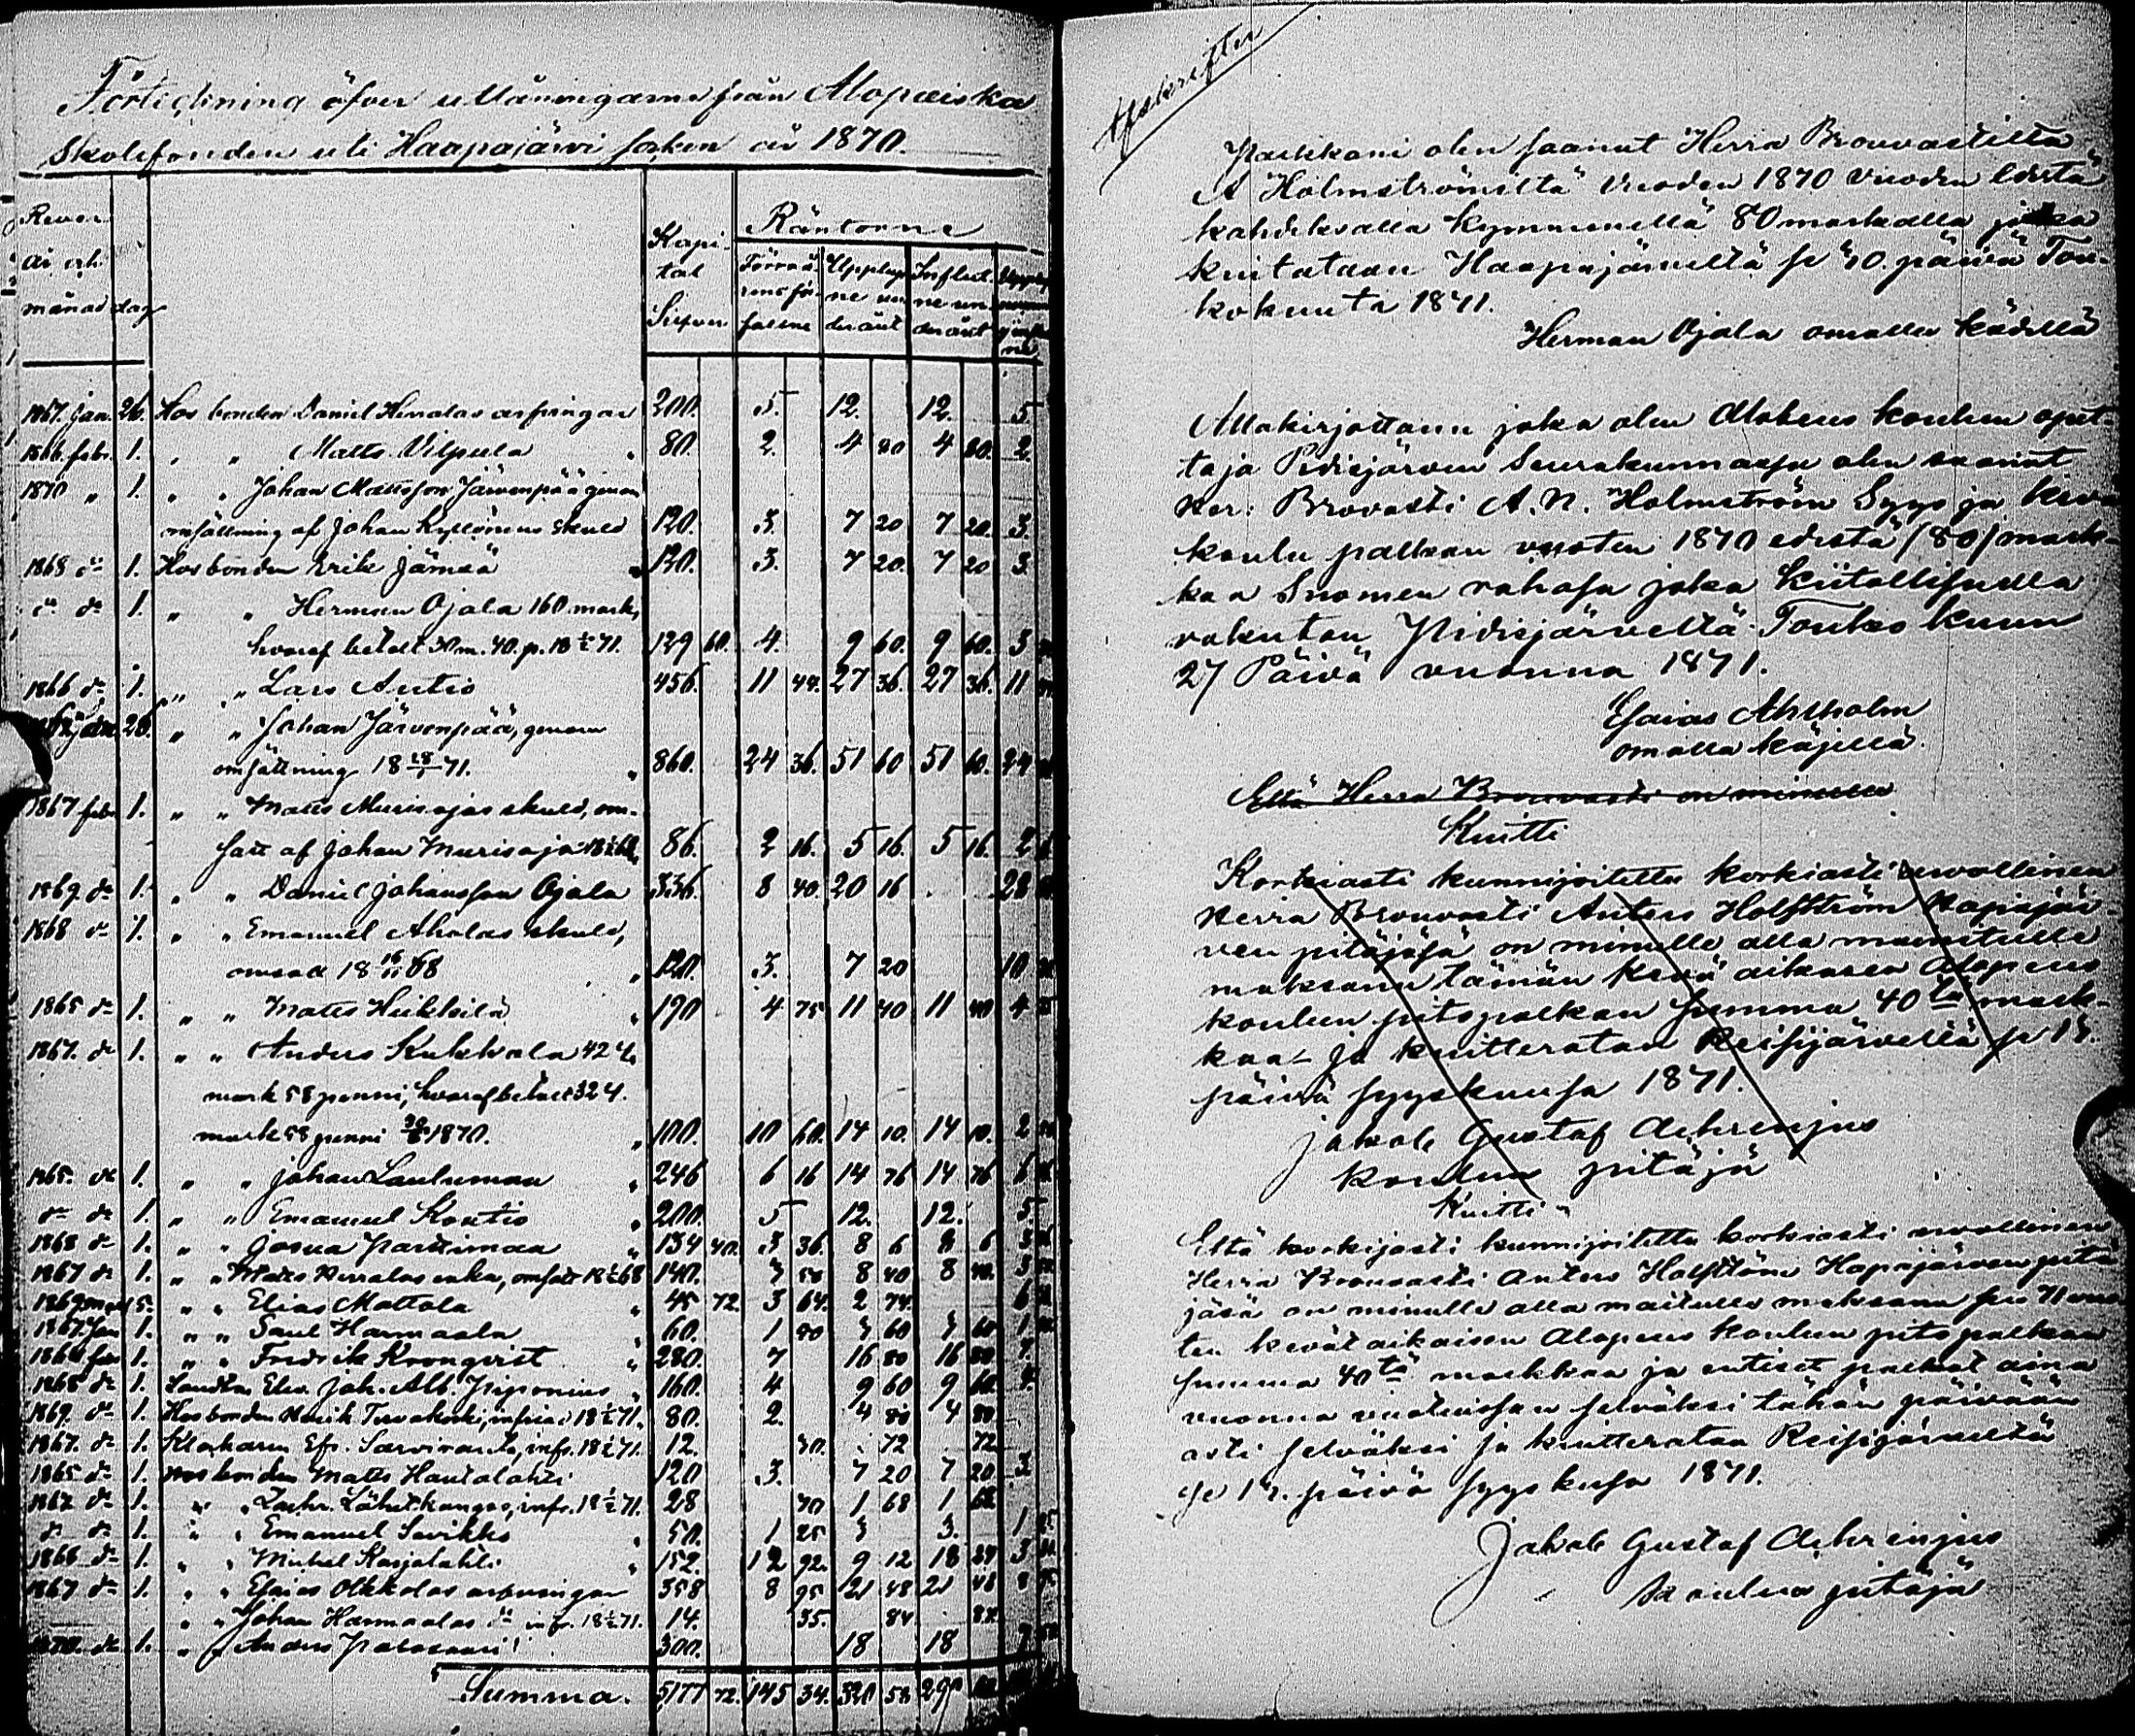 Förteckning öfver utlåningarne från Alopæiska
Skolefonden uti Haapajärvi socken år 1870.
Rever
år och
månad dag
Kapi-
tal
Silfver
Räntorne
Förra å-
rens för-
fallne
Uplup-
ne un-
der året
Influt-
ne un-
der året
1867. jan. 26. Hos bonden Daniel arfvingar 200. 5. 12. 12. 5
1866. febr. 1. " " Matts Vilpula 80. 2. 4 80 4 80. 2.
1870 " 1. " " Johan Mattsson Järvenpää genom
omsättning af Johan Kyllönens skuld 120. 3. 7 20 7 20. 3.
1868 do 1. Hos bonden Erik Jämsä 120. 3. 7 20. 7 20 3
do do 1. " " Herman Ojala 160 mark,
hvaraf betalt 30 m. 40. p. 18 71. 129 60. 4. 9 60. 9 60. 3
1866 do 1. " " Lars Autio 456. 11 44. 27 36. 27 36. 11
26. " " Johan Järvenpää, genom
omsättning 18 28/1 71. 860. 24 36. 51 60 51 60. 24
1867 febr. 1. " " Matts Murisojas skuld, om-
satt af Johan Murisoja 86. 2 16. 5 16. 5 16. 2
1869. do 1. " " Daniel Johansson Ojala 336. 8 40. 20 16 28
1868 do 1. " " Emanuel Aholas skuld,
omsatt 18 68 120. 3. 7 20 10
1865 do 1. " " Matts Heikkilä 190 4 75 11 40 11 40 4
1867. do 1. " " Anders Kukkola 424
mark 58 penni, hvaraf betalt 324.
mark 58 penni 1870. 100. 10 60. 14 10. 14 10. 2
1865. do 1. " " Johan Lauluman 246 6 16 14 76 14 76 6
do do 1. " " Emanuel Kontio 200. 5 12. 12. 5.
1868 do 1. " " Josua Parttimaa 134 40. 3 36. 8 6 8 6 3
1867 do 1. " " Matts enka, omsatt 18 68 140. 3 50 8 40 8 40. 3
1869 5. " " Elias Mattola 45 72. 3 64. 2 74. 6
1867. Jan 1. " " Saul Harmaala 60. 1 50 3 60 3 60 1
febr 1. " " Fredrik Kronqvist 280. 7 16 80 16 80 7.
1868 do 1. Joh. Alb. Piponius 160. 4 9 60 9 60. 4.
1869. do 1. Hos bonden Henrik Tervakoski, infriad 18 71. 80. 2. 4 80 4 80.
1867. do 1. Klockaren Efr. infr. 18 71. 12. 30. 72 72
1865 do 1. Hos bonden Matts Hautalahti 120 3. 7 20 7 20 3
1867 do 1. " " Zachr. Lähetkangas, infr. 18 71. 28 70 1 68 1 68
do do 1. " " Emanuel Savikko 50. 1 25 3 3. 1 25
1866 do 1. " " Michel Karjalahti 152. 12 92. 9 12 18 24 3
1867 do 1. " " Esaias Olkkolas arfvingar 358 8 95 21 48 21 48 8 95
" " Johan Harmaalas do infr. 18 71. 14. 35. 84 84
1870. do 1. " " Anders Palosaari 300. 18 18 7 50
Summa. 5177 72. 145 34. 320 58 290
Afskrifter
Palkkani olen saanut Herra Brouvastilta
A Holmströmiltä vuoden 1870 vuoden edestä
kahdeksalla kymmenellä 80 markalla joka
kuitataan Haapajärveltä se 30. päivä Tou-
kokuuta 1871.
Herman Ojala omalla kädellä
Allakirjoittanu joka olen Alobeus koulun opet-
taja Pidisjärven Seurakunnassa olen saanut
Her: Brovasti A. N. Holmström Syys ja kevä
koulu palkan vuoten 1870 edestä (80) mark-
kaa Suomen rahassa joka kiitollisuella
vakutan Pidisjärveltä Touko kuun
27 Päivä vuonna 1871.
Esaias Ahlholm
omalla käjellä.
Että Herra Brouvasti on minulle
Kuitti
Korkiasti kunnijoitettu korkiasti arvollinen
Herra Brouvasti Anters Holfström Hapajär-
ven pitäjäsä on minulle alla mainitulle
maksanu tämän kevä aikasen Alopeus
koulun pitopalkan Summa 40tä mark-
kaa ja kuitterataa Reisijärvellä se 15.
päivä syyskuusa 1871.
Jakob Gustaf Aehrenjus
koulun pitäjä
Kuitti
Että korkijasti kunnijoitettu korkiasti arvollinen
Herra Brouvasti Anters Holfström Hapajärven pitä
jäsä on minulle alla maitulle maksanu sen 71 vuo
ten kevät aikaisen Alopeus koulun pitopalkan
summa 40tä markkaa ja entiset palkat aina
vuonna vuotuissan selväksi tähän päivään
asti selväksi ja kuitterataa Reisijärveltä
se 15. päivä syyskusa 1871.
Jakob Gustaf Aehrenjus
koulun pitäjä